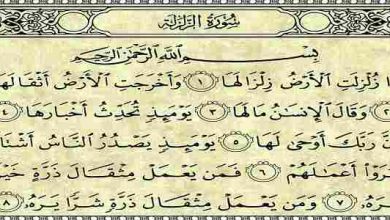 سُورَةُ الزَّلْزَلَةِ
بِسْمِ اللَّهِ الرَّحْمَٰنِ الرَّحِيمِ
زُلْزِلَتِ الْأَرْضُ زِلْزَالَهَا ١ وَأَخْرَجَتِ الْأَرْضُ أَثْقَالَهَا
٢ وَقَالَ الْإِنسَانُ مَا لَهَا ٣ يَوْمَئِذٍ تُحَدِّثُ أَخْبَارَهَا ٤
رَبَّكَ أَوْحَىٰ لَهَا ٥ يَوْمَئِذٍ يَصْدُرُ النَّاسُ
أَعْمَالَهُمْ ٦ فَمَن يَعْمَلْ مِثْقَالَ ذَرَّةٍ
يَرَهُ ٧ وَمَن يَعْمَلْ مِثْقَالَ ذَرَّةٍ شَرًّا يَرَهُ ٨